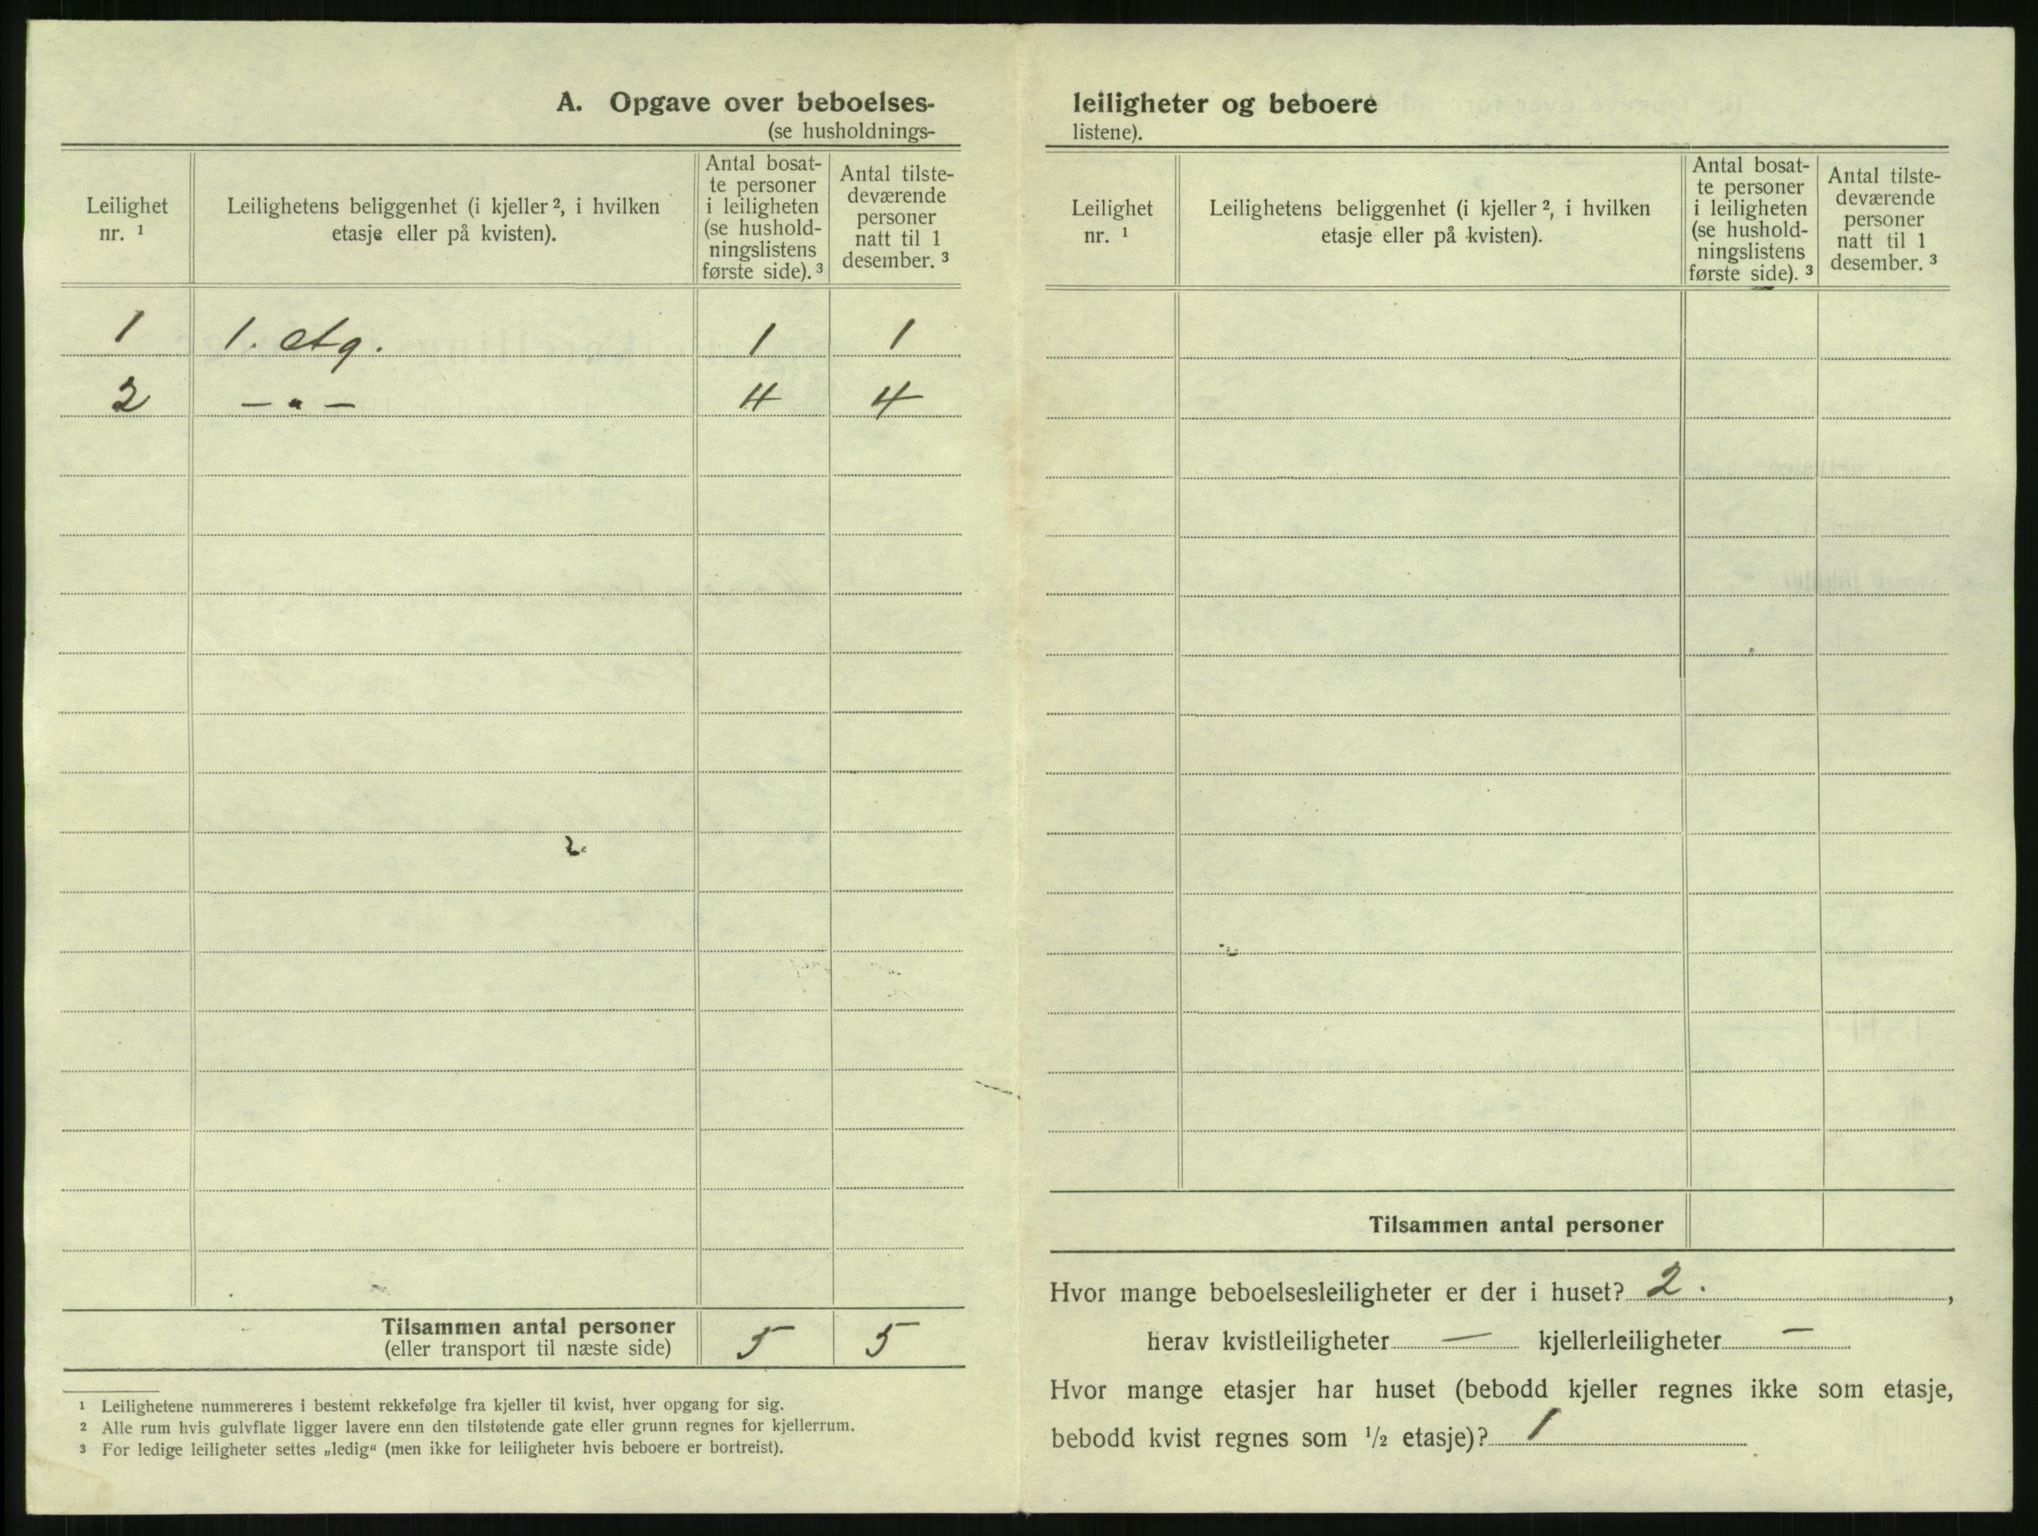 A. Opgave over beboelses-
(se husholdnings-
Leilighet
nr. ¹
Leilighetens beliggenhet (i kjeller ², i hvilken
etasje eller på kvisten).
Antal bosat-
te personer
i leiligheten
(se hushold-
ningslistens
første side). ³
Antal tilste-
deværende
personer
natt til 1
desember. ³
1 1. etg. 1 1
2 — " — 4 4
2.
Tilsammen antal personer 5 5
(eller transport til næste side)
¹ Leilighetene nummereres i bestemt rekkefølge fra kjeller til kvist, hver opgang for sig.
² Alle rum hvis gulvflate ligger lavere enn den tilstøtende gate eller grunn regnes for kjellerrum.
³ For ledige leiligheter settes „ledig“ (men ikke for leiligheter hvis beboere er bortreist).
leiligheter og beboere
listene).
Leilighet
nr. ¹
Leilighetens beliggenhet (i kjeller ², i hvilken
etasje eller på kvisten).
Antal bosat-
te personer
i leiligheten
(se hushold-
ningslistens
første side). ³
Antal tilste-
deværende
personer
natt til 1
desember. ³
Tilsammen antal personer
Hvor mange beboelsesleiligheter er der i huset? 2. ,
herav kvistleiligheter — kjellerleiligheter —
Hvor mange etasjer har huset (bebodd kjeller regnes ikke som etasje,
bebodd kvist regnes som ½ etasje)? 1